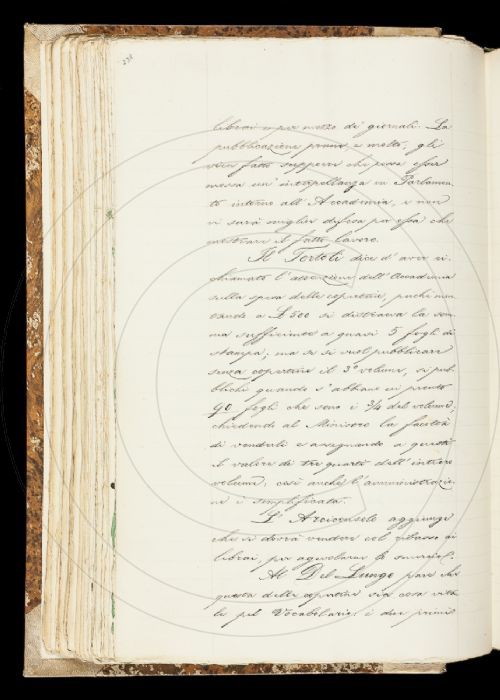 librai o per mezzo di giornali. La
pubblicazione preme, e molto, gli
vien fatto supporre che possa esser
mossa un' interpellanza in Parlamen-
to intorno all' Accademia, e non
vi sarà miglior difesa per essa che
mostrare il fatto lavoro.
Il Tortoli dice d' aver ri-
chiamato l' attenzione dell' Accademia
sulla spesa delle copertine, perchè mon-
tando a L 500 si distraeva la som-
ma sufficiente a quasi 5 fogli di
stampa; ma se si vuol pubblicare
senza copertina il 3º volume, si pub-
blichi quando s' abbiano in pronto
90 fogli che sono i 3/4 del volume,
chiedendo al Ministero la facoltà
di venderli e assegnando a questi
il valore di tre quarti dell' intiero
volume; così anche l' amministrazio-
ne è semplificata.
L' Arciconsolo aggiunge
che si dovrà vendere col ribasso ai
librai, per agevolarne lo
Al Del Lungo pare che
questa delle copertine sia cosa uti-
le pel Vocabolario: i due primi